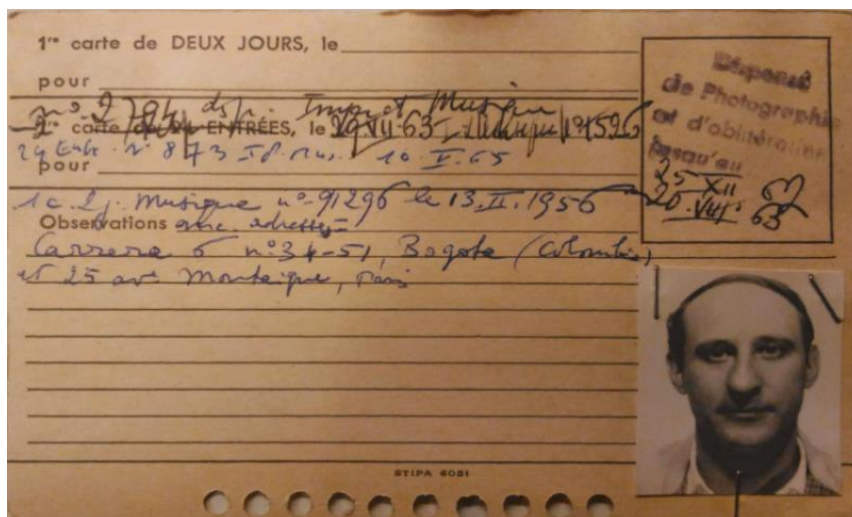 1re carte de DEUX JOURS, le
pour
no 2 Imp. et Musique
2e carte de 24 ENTRÉES, le 29 VII 63 Musique no 1596
24 Entr. No 873 Imp. Mus. 10.V.65
pour
1c. 2j. Musique no 91296 le 13.II.1956
Observations anc. adresse =
Carrera 6 no 34-51, Bogota (Colombie)
et 25 av. Montaigne, Paris
Dispensé
de Photographie
et d'oblitération
jusqu'au
25 XII 62
20 VIII 63
STIPA 6051